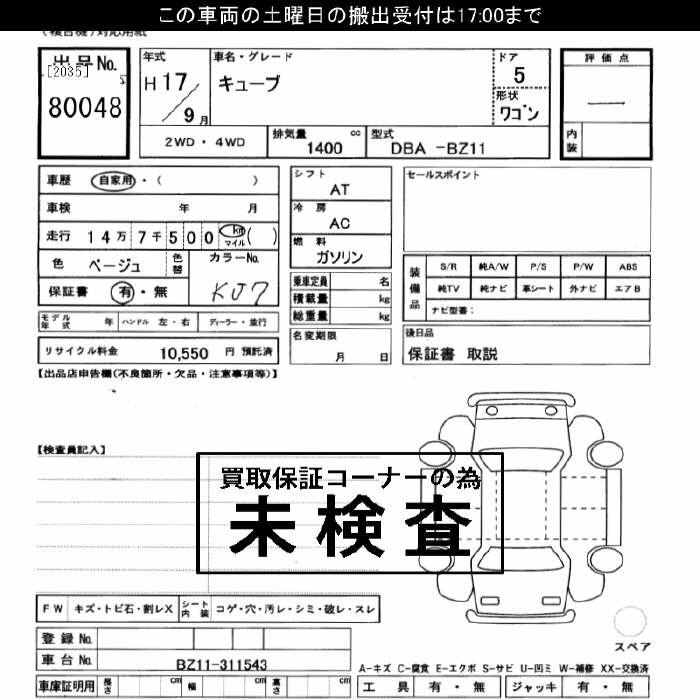 この車両の土曜日の搬出受付は17:00まで
出品No.
[2035]
80048
年式
H 17/9月
車名・グレード
キューブ
ドア
5
形状
ワゴン
評価点
内装
2WD・4WD
排気量 cc
1400
型式
DBA -BZ11
車歴 自家用・( )
車検 年 月
走行 14万7千500 km マイル ( )
色 ベージュ 色替
カラーNo.
KJ7
保証書 有・無
モデル年式 年 ハンドル 左・右 ディーラー・並行
リサイクル料金 10,550 円 預託済
シフト
AT
冷房
AC
燃料
ガソリン
乗車定員 名
積載量 kg
総重量 kg
名変期限
月 日
セールスポイント
装備品
S/R 純A/W P/S P/W ABS
純TV 純ナビ 革シート 外ナビ エアB
ナビ型番:
後日品
保証書 取説
【出品店申告欄(不良箇所・欠品・注意事項等)】
【検査員記入】
買取保証コーナーの為
未検査
FW キズ・トビ石・割レX シート内装 コゲ・穴・汚レ・シミ・破レ・スレ
登録No.
車台No. BZ11-311543
車庫証明用 長さ cm 幅 cm 高さ cm
スペア
A-キズ C-腐食 E-エクボ S-サビ U-凹ミ W-補修 XX-交換済
工具 有・無 ジャッキ 有・無